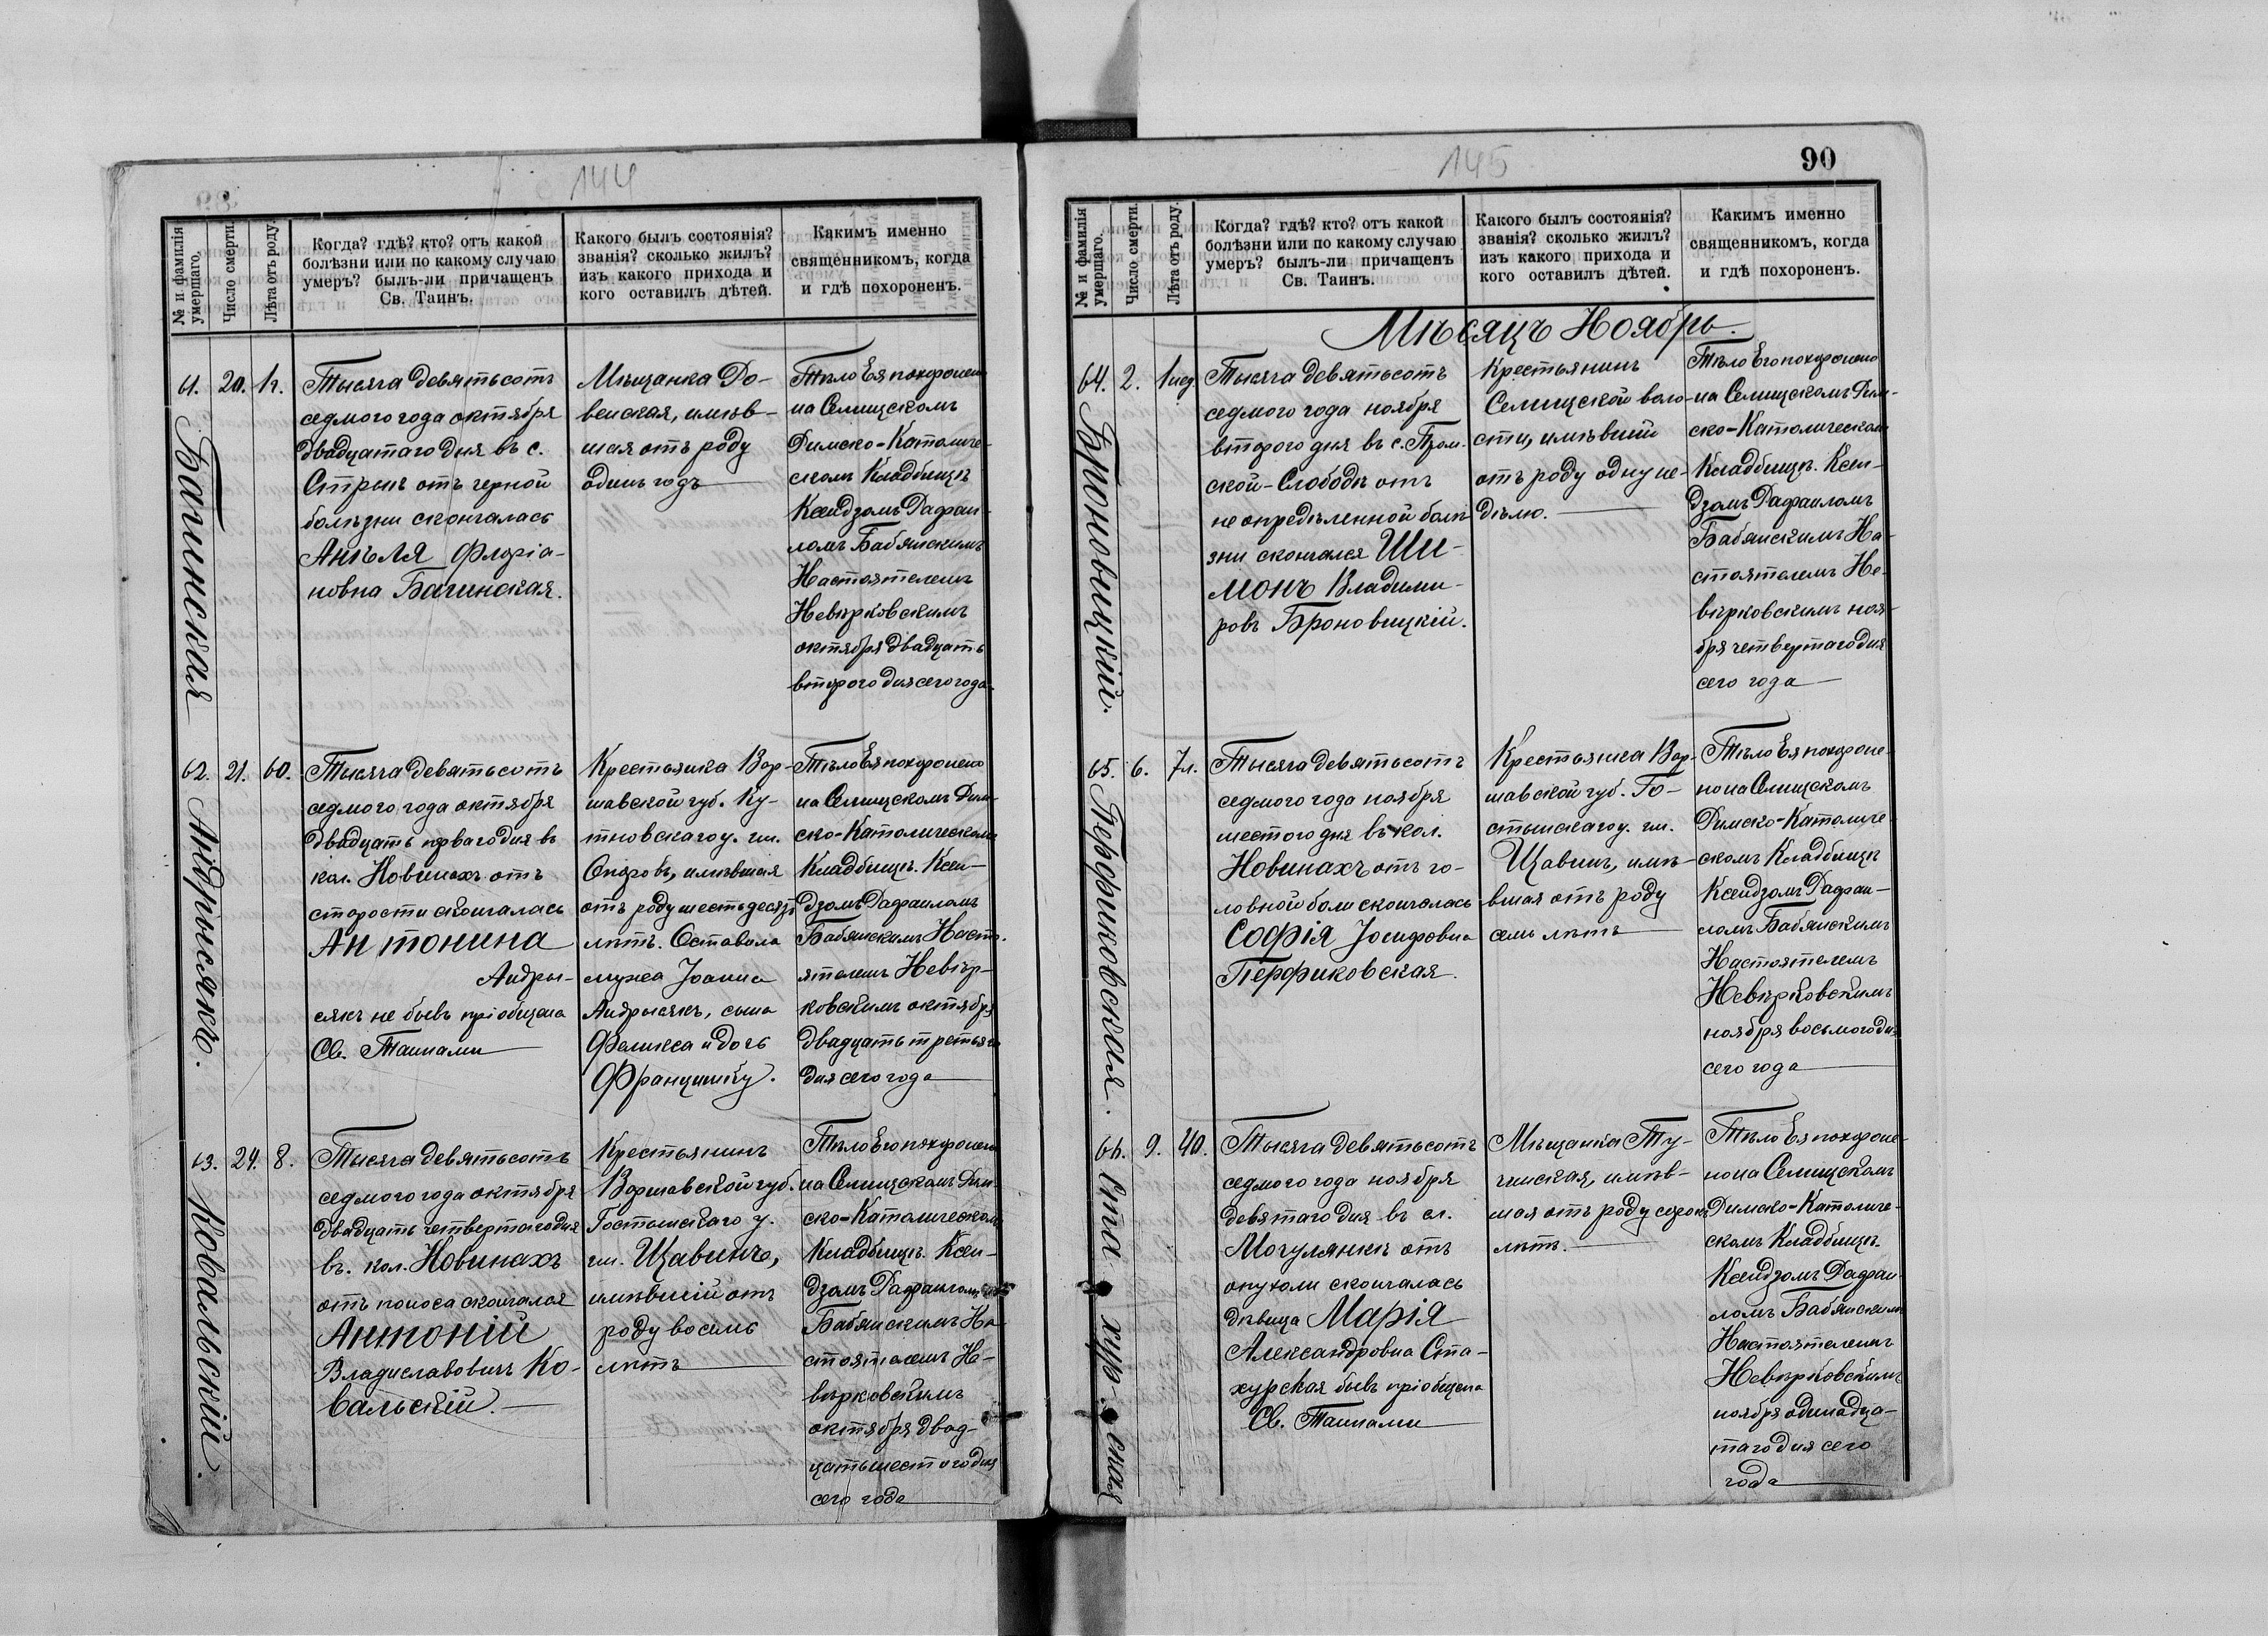 144
№ и фамилія умершаго.
Число смерти.
Лѣта отъ роду.
Когда? гдѣ? кто? отъ какой
болѣзни или по какому случаю
умеръ? былъ-ли причащенъ
Св. Таинъ.
Какого былъ состоянія?
званія? сколько жилъ?
изъ какого прихода и
кого оставилъ дѣтей.
Какимъ именно
священникомъ, когда
и гдѣ похороненъ.
61.
Багинская
20.
1г.
Тысяча девятьсотъ
седмого года октября
двадцатаго дня въ с.
Стрыѣ отъ черной
болѣзни скончалась
Анѣля Флоріа-
новна Багинская.
Мѣщанка До-
венская, имѣв-
шая отъ роду
одинъ годъ
Тѣло Ея похоронено
на Селищскомъ
Римско-Католиче-
скомъ Кладбищѣ
Ксендзомъ Рафаи-
ломъ Бабянскимъ
Настоятелемъ
Невѣрковскимъ
октября двадцать
второго дня сего года
62.
Андрысякъ.
21.
60.
Тысяча девятьсотъ
седмого года октября
двадцать перваго дня въ
кол. Новинахъ отъ
старости скончалась
Антонина
Андры-
сякъ не бывъ пріобщена
Св. Таинами
Крестьянка Вар-
шавской губ. Ку-
тновскаго у. гм.
Опоровъ, имѣвшая
отъ роду шестьдесятъ
лѣтъ. Оставила
мужа Іоанна
Андрысякъ, сына
Феликса и дочь
Францишку.
Тѣло Ея похоронено
на Селищскомъ Рим-
ско-Католическомъ
Кладбищѣ. Ксен-
дзомъ Рафаиломъ
Бабянскимъ Насто-
ятелемъ Невѣр-
ковскимъ октября
двадцать третьяго
дня сего года
63.
Ковальскій.
24.
8.
Тысяча девятьсотъ
седмого года октября
двадцать четвертаго дня
въ. кол. Новинахъ
отъ поноса скончался
Антоній
Владиславовичъ Ко-
вальскій.
Крестьянинъ
Варшавской губ.
Гостынскаго у.
гм. Щавинъ,
имѣвшій отъ
роду восемь
лѣтъ
Тѣло Его похоронено
на Селищскомъ Рим-
ско-Католическомъ
Кладбищѣ. Ксен-
дзомъ Рафаиломъ
Бабянскимъ На-
стоятелемъ Не-
вѣрковскимъ
октября двад-
цать шестого дня
сего года
145
90
№ и фамилія умершаго.
Число смерти.
Лѣта отъ роду.
Когда? гдѣ? кто? отъ какой
болѣзни или по какому случаю
умеръ? былъ-ли причащенъ
Св. Таинъ.
Какого былъ состоянія?
званія? сколько жилъ?
изъ какого прихода и
кого оставилъ дѣтей.
Какимъ именно
священникомъ, когда
и гдѣ похороненъ.
Мѣсяцъ Ноябрь.
64.
Броновицкій.
2.
1 нед.
Тысяча девятьсотъ
седмого года ноября
второго дня въ с.
ской-Слободѣ отъ
не опредѣленной болѣ-
зни скончался Ши-
монъ Владими-
ровъ Броновицкій.
Крестьянинъ
Селищской воло-
сти, имѣвшій
отъ роду одну не-
дѣлю.
Тѣло Его похоронено
на Селищскомъ Рим-
ско-Католическомъ
Кладбищѣ. Ксен-
дзомъ Рафаиломъ
Бабянскимъ На-
стоятелемъ Не-
вѣрковскимъ ноя-
бря четвертаго дня
сего года
65.
Перфиковская.
6.
7л.
Тысяча девятьсотъ
седмого года ноября
шестого дня въ кол.
Новинахъ отъ го-
ловной боли скончалась
Софія Іосифовна
Перфиковская.
Крестьянка Вар-
шавской губ. Го-
стынскаго у. гм.
Щавинъ, имѣ-
вшая отъ роду
семь лѣтъ
Тѣло Ея похоро́не-
но на Селищскомъ
Римско-Католиче-
скомъ Кладбищѣ
Ксендзомъ Рафаи-
ломъ Бабянскимъ
Настоятелемъ
Невѣрковскимъ
ноября восьмого дня
сего года
66.
Стахурская
9.
40.
Тысяча девятьсотъ
седмого года ноября
девятаго дня въ сл.
Могулянкѣ отъ
опухоли скончалась
дѣвица Марія
Александровна Ста-
хурская бывъ пріобщена
Св. Таинами
Мѣщанка Ту-
чинская, имѣв-
шая отъ роду сорокъ
лѣтъ.
Тѣло Ея похороне-
но на Селищскомъ
Римско-Католиче-
скомъ Кладбищѣ.
Ксендзомъ Рафаи-
ломъ Бабянскимъ
Настоятелемъ
Невѣрковскимъ
ноября одинадца-
таго дня сего
года